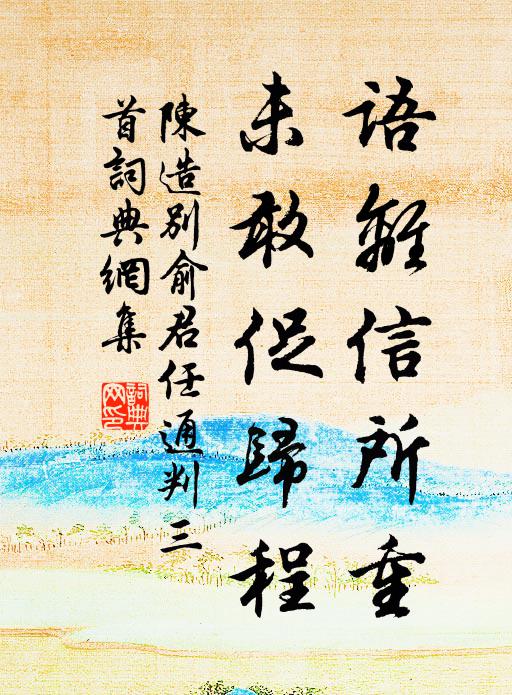 語離信所重
未敢促歸程
陳造別俞君任通判三
首詞典網集
詞典
网印